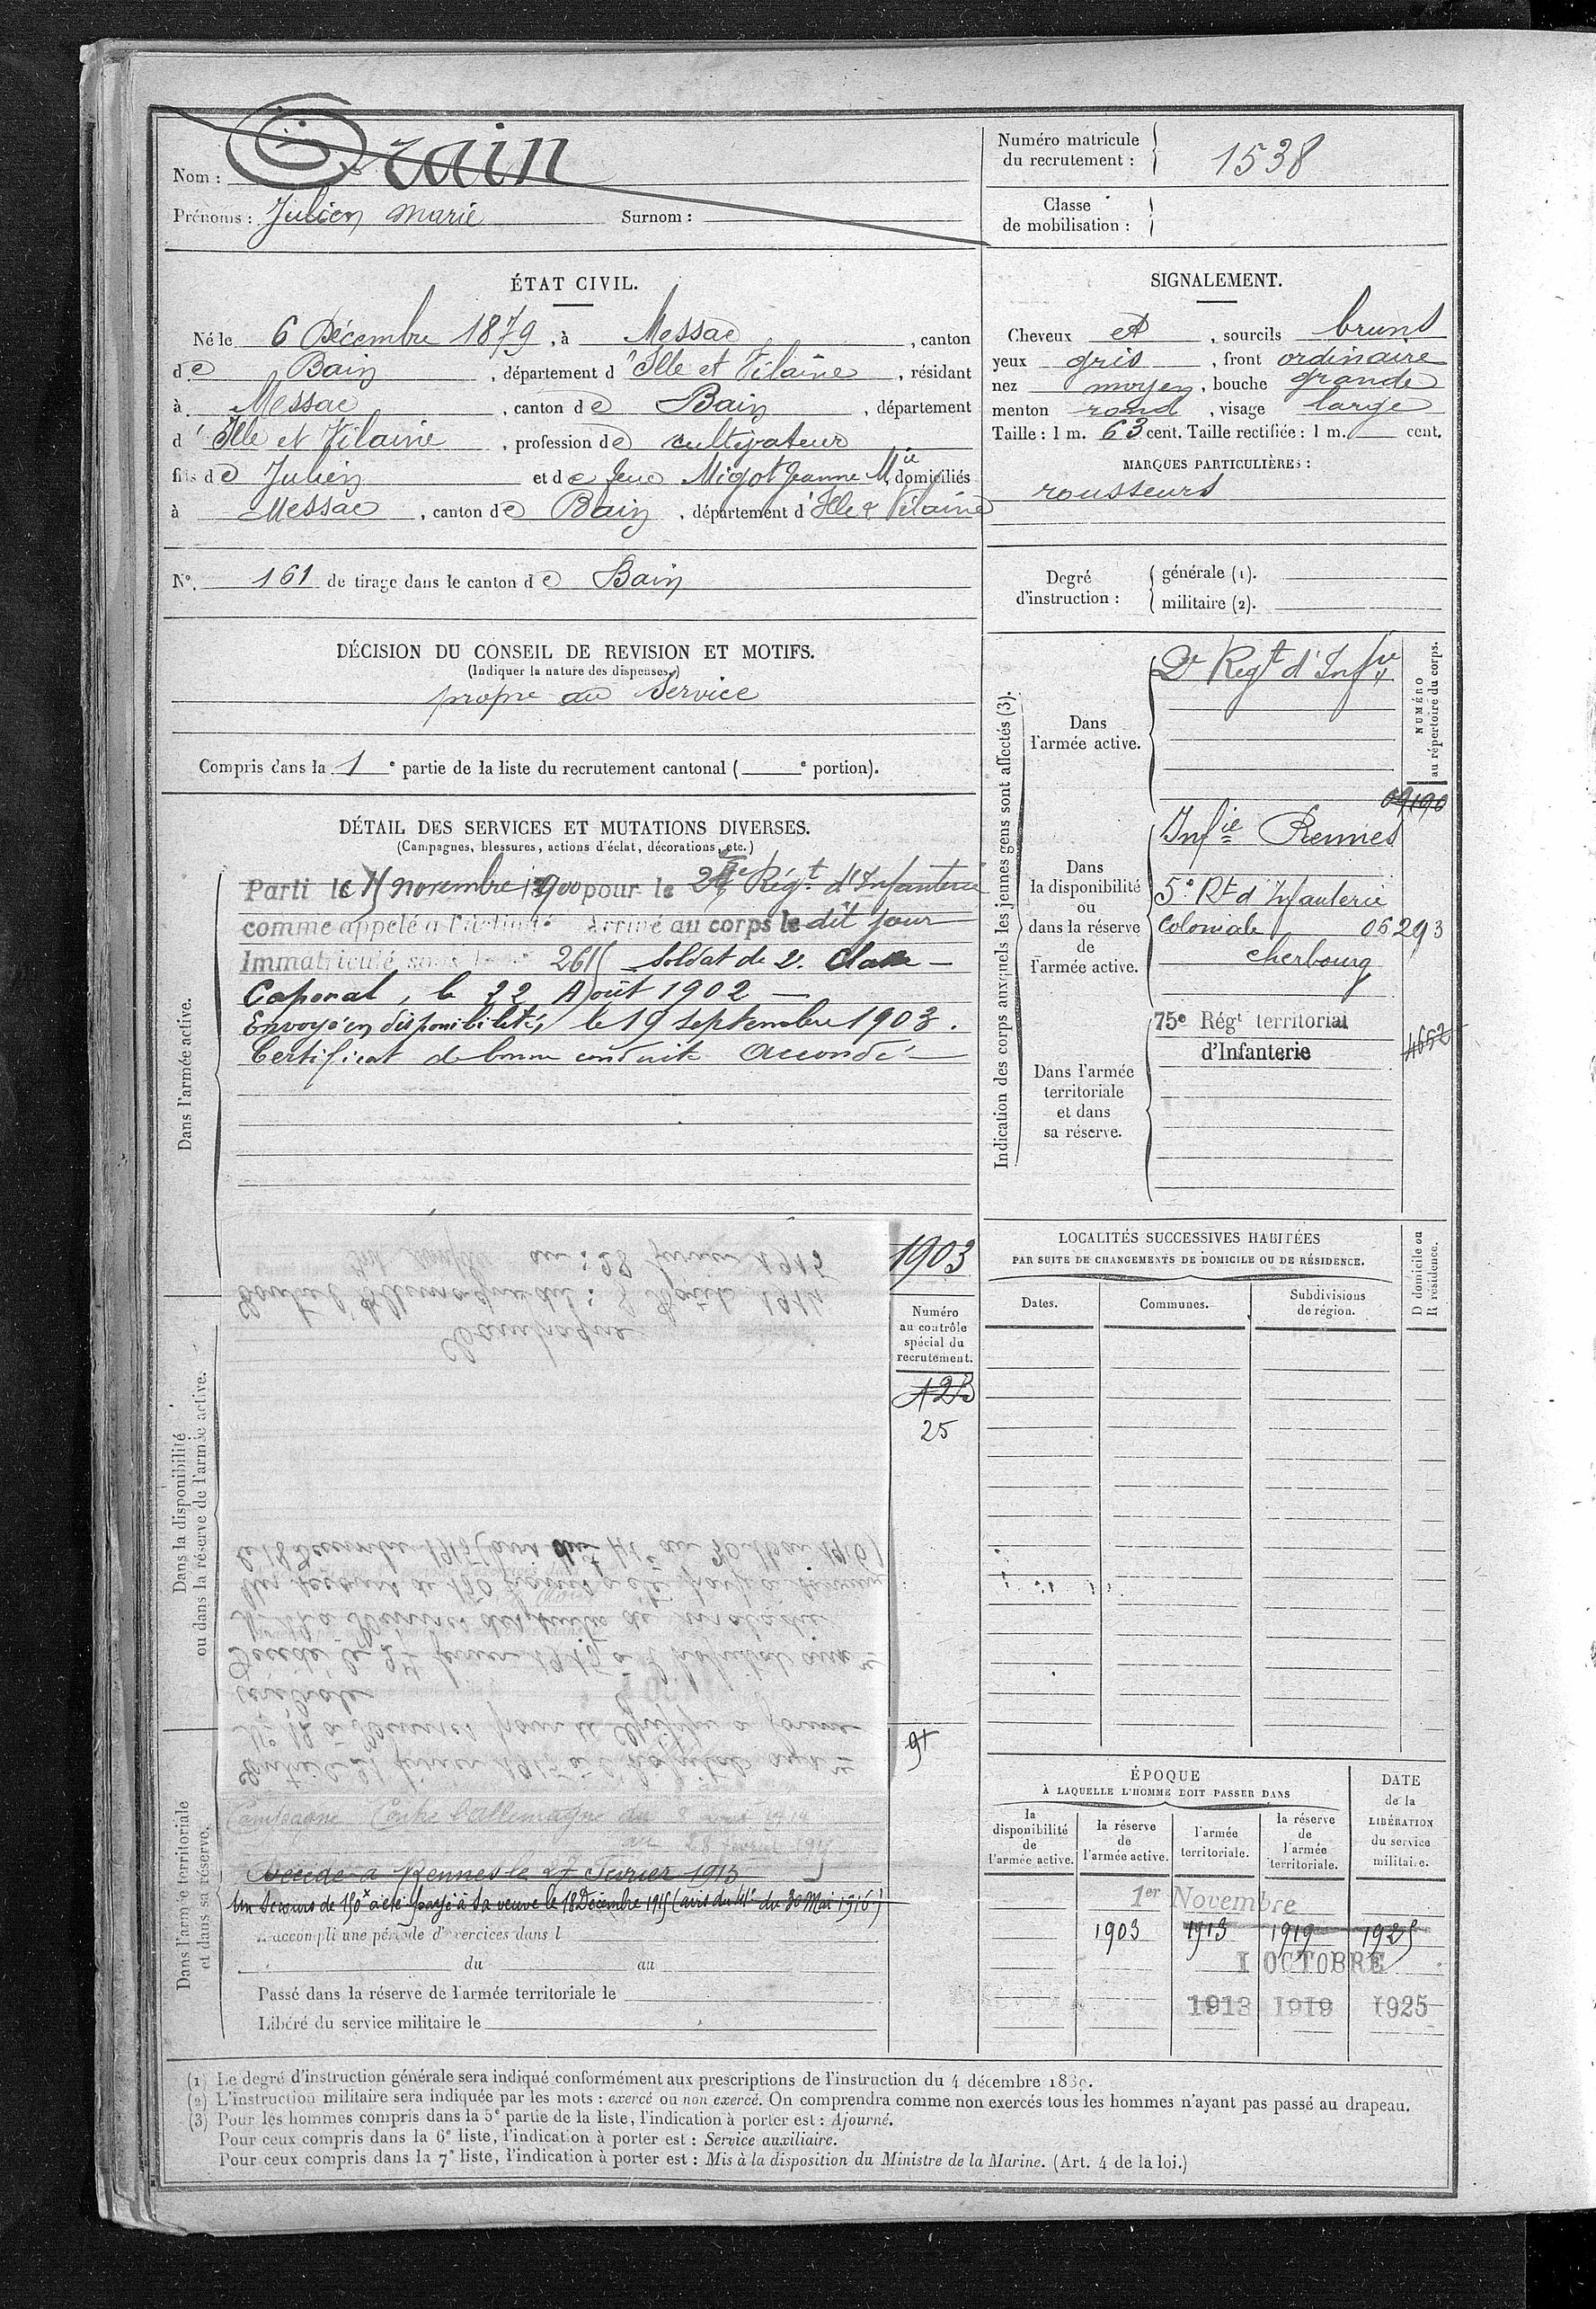 Nom : Orain
Prénoms : Julien Marie Surnom :
Numéro matricule du recrutement : 1538
Classe de mobilisation :
ÉTAT CIVIL.
Né le 6 Décembre 1879, à Messac, canton
de Bain, département d'Ille et Vilaine, résidant
à Messac, canton de Bain, département
d'Ille et Vilaine, profession de cultivateur
fils de Julien et de feue Migot Jeanne Mie domiciliés
à Messac, canton de Bain, département d'Ille & Vilaine
N°. 161 de tirage dans le canton de Bain
SIGNALEMENT.
Cheveux et, sourcils bruns
yeux gris, front ordinaire
nez moyen, bouche grande
menton rond, visage large
Taille : 1 m. 63 cent. Taille rectifiée : 1 m. cent.
MARQUES PARTICULIÈRES :
rousseurs
Degré d'instruction : générale (1).
militaire (2).
DÉCISION DU CONSEIL DE REVISION ET MOTIFS.
(Indiquer la nature des dispenses.)
propre au service
Compris dans la 1e partie de la liste du recrutement cantonal ( e portion).
DÉTAIL DES SERVICES ET MUTATIONS DIVERSES.
(Campagnes, blessures, actions d'éclat, décorations, etc.)
Dans l'armée active.
Parti le novembre 1900 pour le 2e Régt d'Infanterie
comme appelé à l'activité Arrivé au corps le dit jour
Immatriculé sous le n° soldat de 2e Classe
Caporal, le 22 Août 1902
Envoyé en disponibilité, le 19 septembre 1903.
Certificat de bonne conduite Accordé
Indication des corps auxquels les jeunes gens sont affectés (3).
NUMÉRO au répertoire du corps.
Dans l'armée active.
2e Regt d'Infie
Dans la disponibilité ou dans la réserve de l'armée active.
09190
Infie Rennes
5e Rt d'Infanterie
Coloniale 06293
Cherbourg
Dans l'armée territoriale et dans sa réserve.
75e Régt territorial
d'Infanterie
4652
Dans la disponibilité ou dans la réserve de l'armée active.
1903
Numéro au contrôle spécial du recrutement.
25
Campagne
Contre l'Allemagne du : Août 1914
au : 28 février 1915
Entré le 21 février 1915 à l'hopital
N° 12 à Rennes pour Grippe à forme
cérébrale
Décédé le 27 février 1915 à l'hopital
à Rennes des suites de maladie
Un secours de 150 francs a été payé à sa veuve
le 18 Décembre 1915 (avis du 41e du 30 Mai 1916)
LOCALITÉS SUCCESSIVES HABITÉES
PAR SUITE DE CHANGEMENTS DE DOMICILE OU DE RÉSIDENCE.
Dates. Communes. Subdivisions de région. D domicile ou R résidence.
Dans l'armée territoriale et dans sa réserve.
Campagne Contre l'Allemagne du août 1914
au 28 février 1915
Décédé à Rennes le 27 Février 1915
Un Secours de 150 a été payé à sa veuve le 18 Décembre 1915 (avis du 41e du 30 Mai 1916)
A accompli une période d'exercices dans l
du au
Passé dans la réserve de l'armée territoriale le
Libéré du service militaire le
ÉPOQUE
À LAQUELLE L'HOMME DOIT PASSER DANS
la disponibilité de l'armée active. la réserve de l'armée active. l'armée territoriale. la réserve de l'armée territoriale.
DATE de la LIBÉRATION du service militaire.
1er Novembre
1903 1913 1919 1925
1 OCTOBRE
1913 1919 1925
(1) Le degré d'instruction générale sera indiqué conformément aux prescriptions de l'instruction du 4 décembre
(2) L'instruction militaire sera indiquée par les mots : exercé ou non exercé. On comprendra comme non exercés tous les hommes n'ayant pas passé au drapeau.
(3) Pour les hommes compris dans la 5e partie de la liste, l'indication à porter est : Ajourné.
Pour ceux compris dans la 6e liste, l'indication à porter est : Service auxiliaire.
Pour ceux compris dans la 7e liste, l'indication à porter est : Mis à la disposition du Ministre de la Marine. (Art. 4 de la loi.)